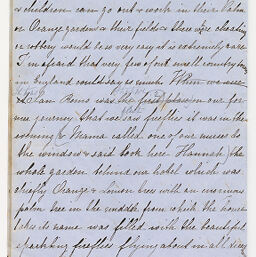 & children can go out & work in their
in Orange gardens & their fields & there cheating
or robbery would be so very easy it is extremely rare.
I'm afraid that very few of our small country
in England could say so much. When we were
San Remo was the first place in our for
mer journey that we saw fireflies it was in the
evening & Mama called one of our nurses to
the window & said look here Hannah, the
whole garden behind our hotel which was
chiefly Orange & Lemon trees with an enormous
palm tree in the middle from which the house
takes its name was filled with the beautiful
sparkling fireflies flying about in all